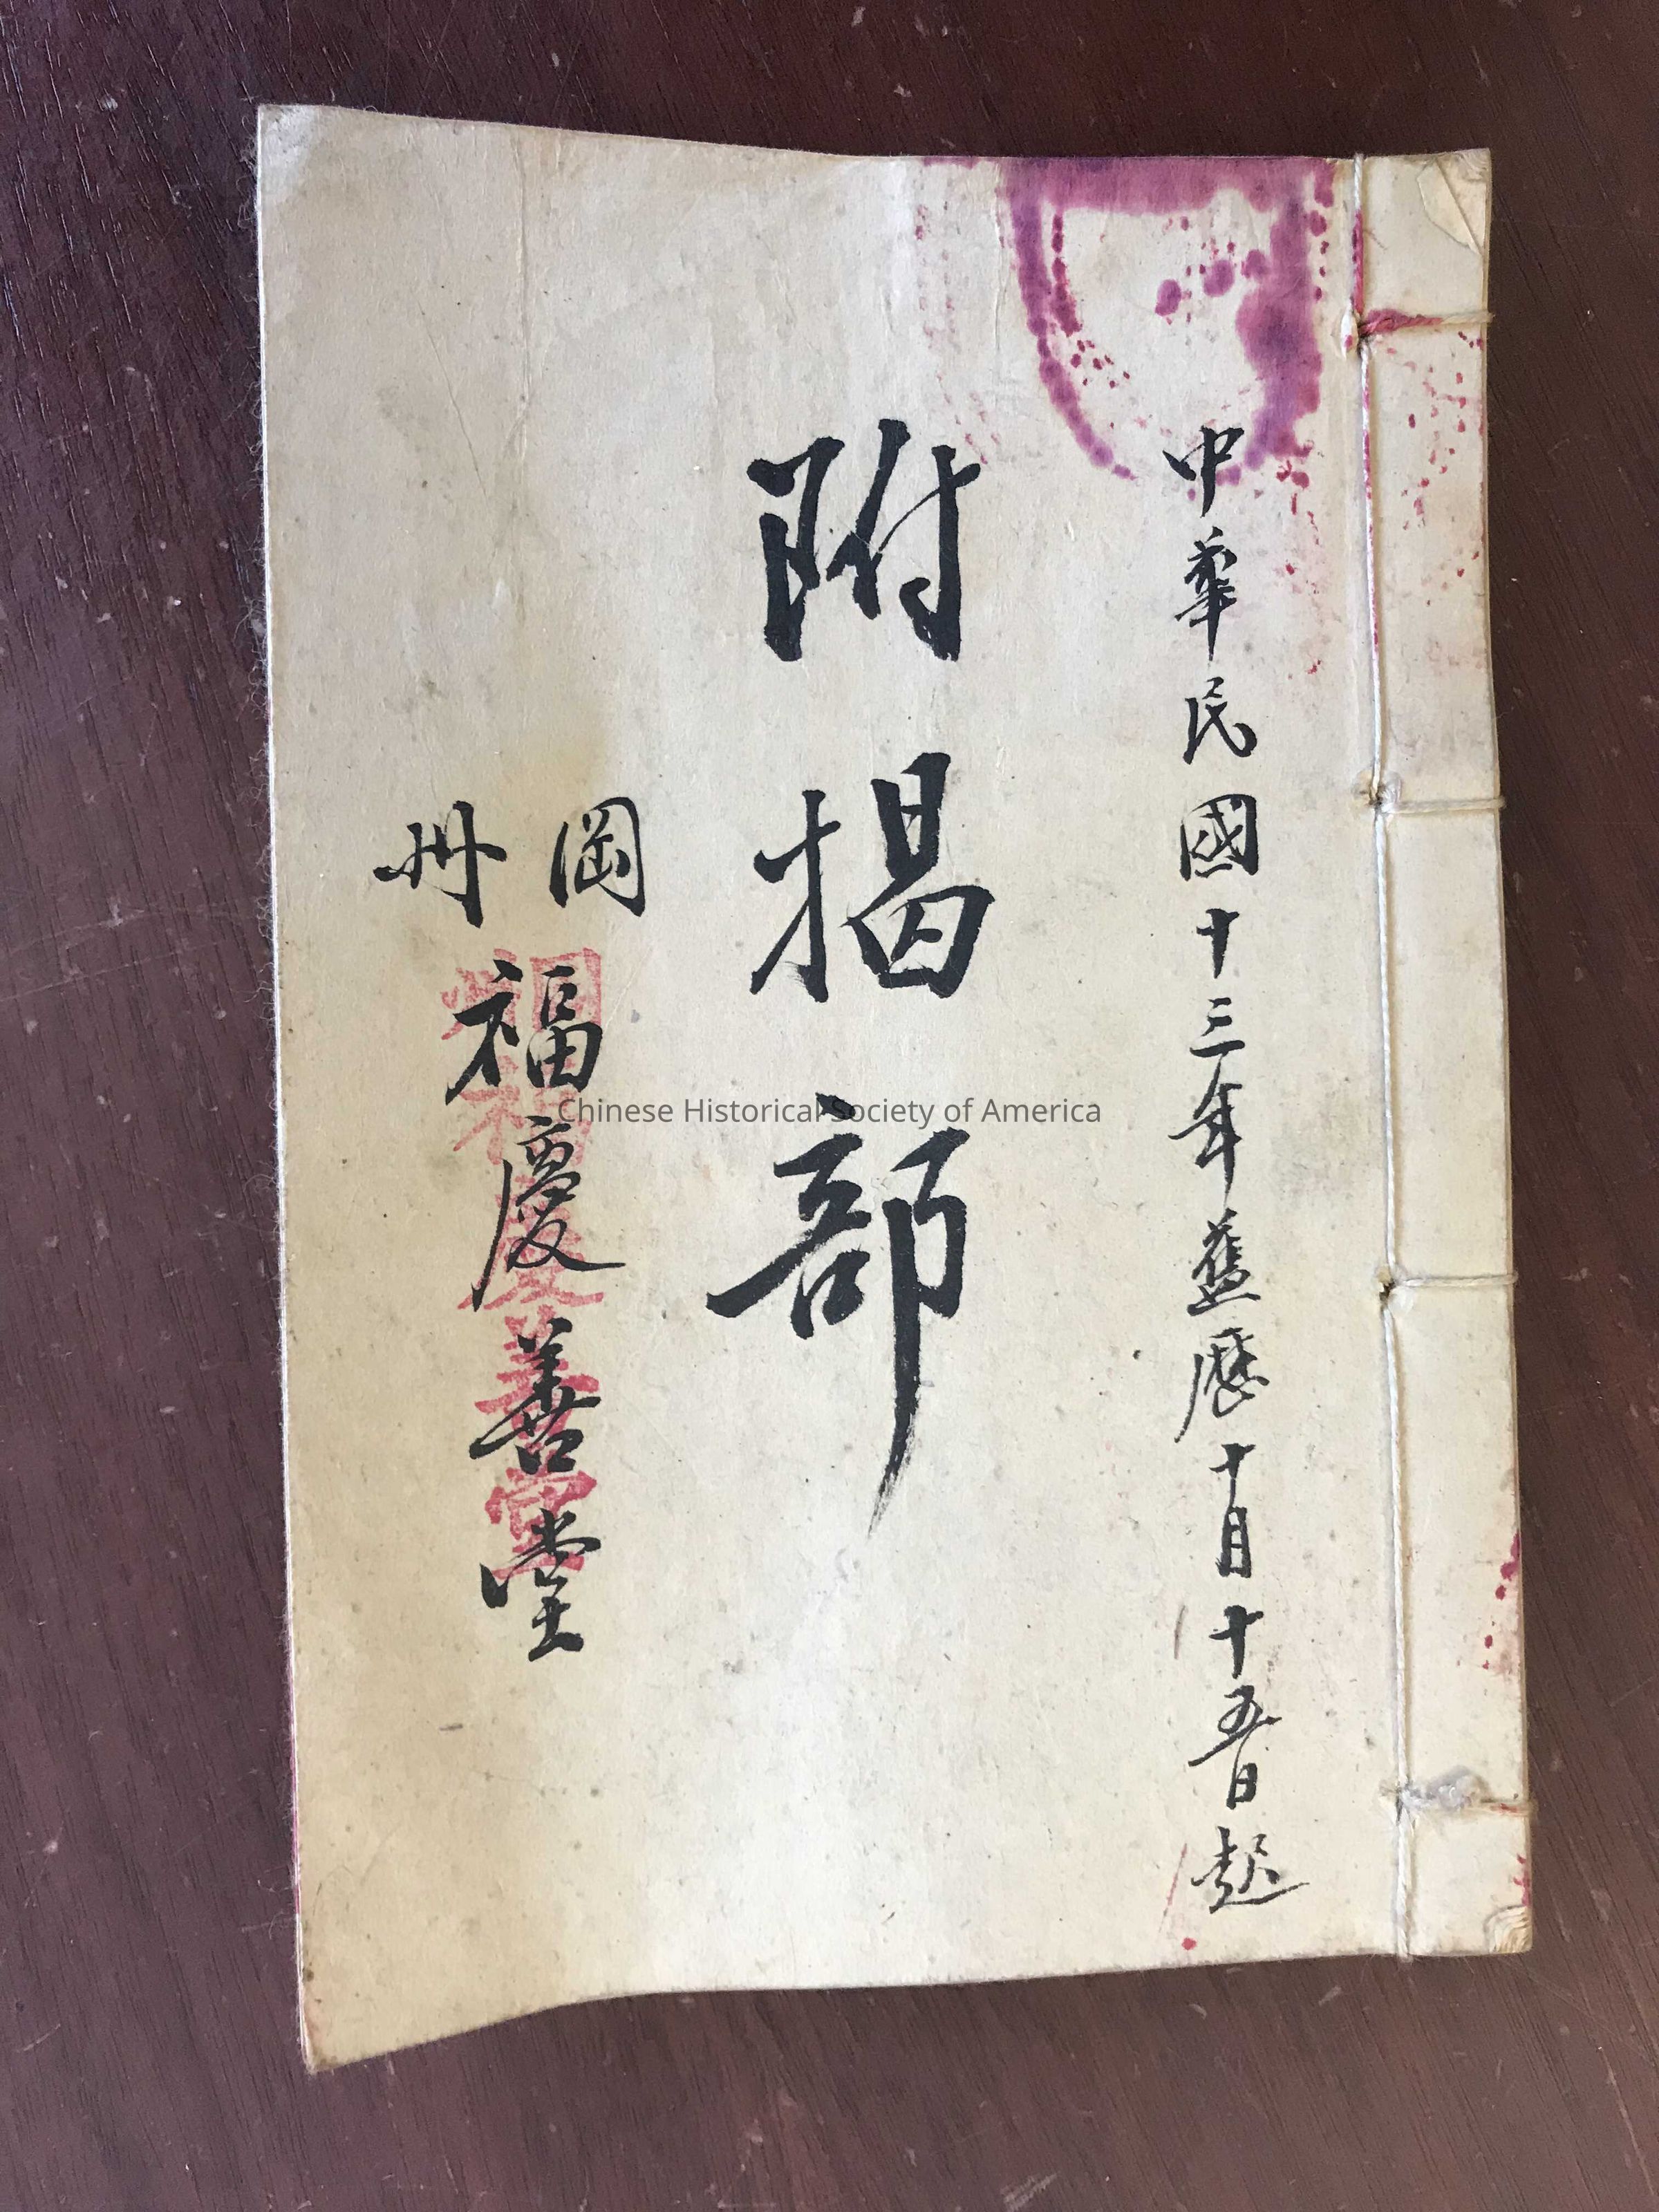 中華民國十三年舊歷十月十五日起
附揭部
岡州福慶善堂
岡州福慶善堂
Chinese Historical Society of America